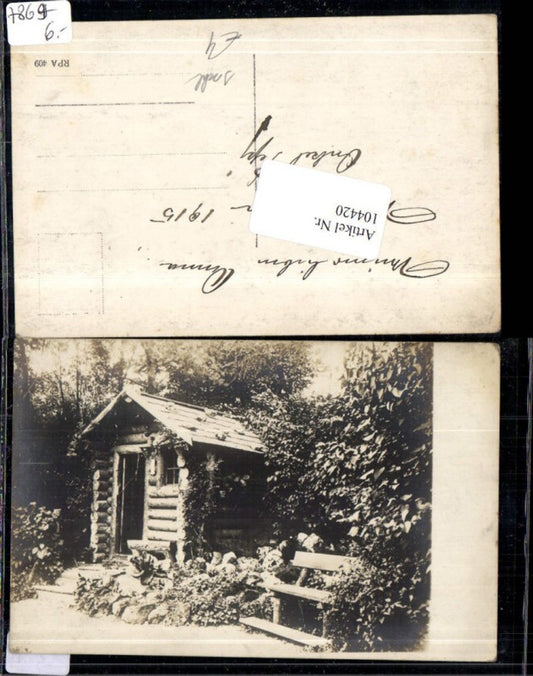 7869
6.-
RPA 409
Meiner lieben Anna
1915
Onkel Sepp
Artikel Nr.
104420